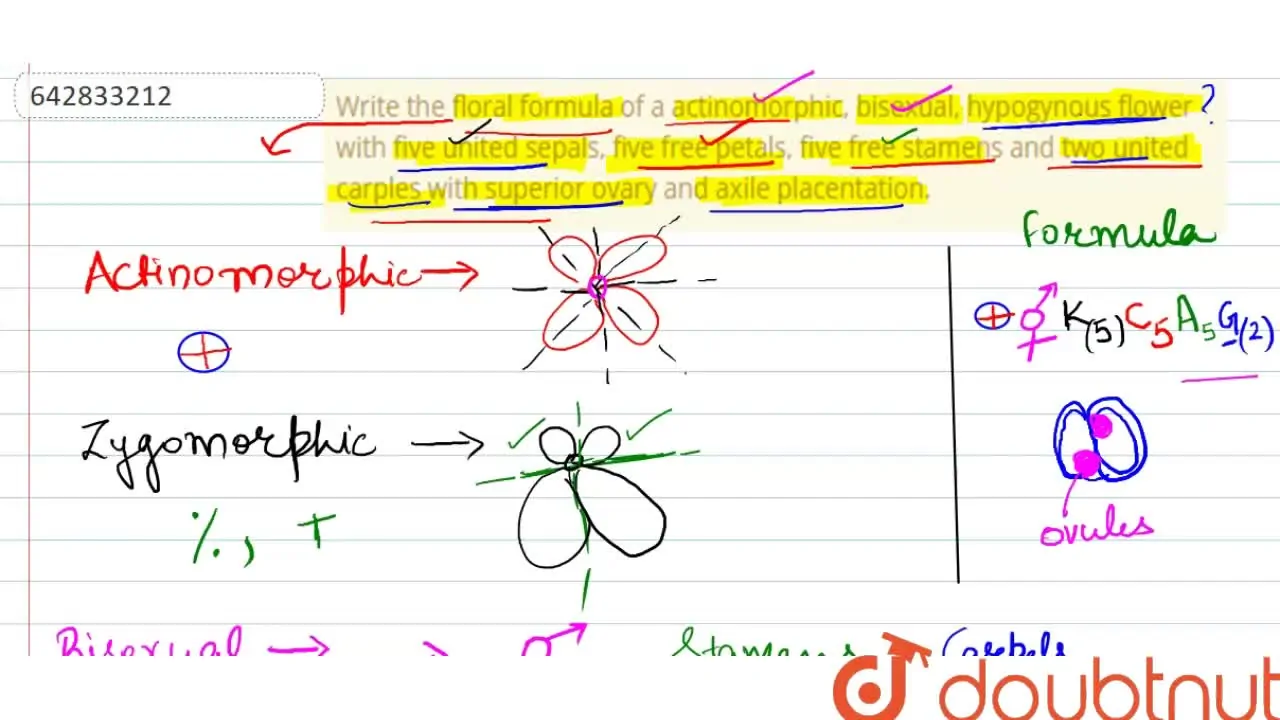 642833212
Write the floral formula of a actinomorphic, bisexual, hypogynous flower ?
with five united sepals, five free petals, five free stamens and two united
carples with superior ovary and axile placentation.
Formula
Actinomorphic →
⊕
⊕ ⚥ K(5) C5 A5 G(2)
Zygomorphic →
%, +
ovules
Bisexual →
Stamens
Carpels
doubtnut